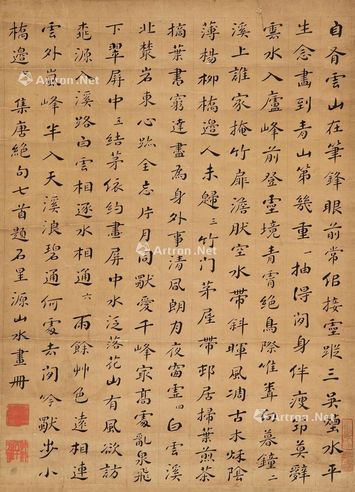 自有雲山在筆鋒眼前常侶接靈蹤三吳煙水平
生念畫到青山第幾重 抽得閒身伴瘦筇莫辭
雲水入廬峰前登靈境青霄絕鳥際惟聞向暮鐘二
溪上誰家掩竹扉澹狀空水帶斜暉風凋古木秋陰
薄楊柳橋邊人未歸三竹門茅屋帶邨居掃葉煎茶
摘葉書窮達盡為身外事清風朗月夜窗虛四白雲溪
北叢岩東心跡全忘片月同獨愛千峰最高處亂泉飛
下翠屏中五結茅依約畫屏中水泛落花山有風欲訪
桃源溪路白雲相逐水相通六雨餘艸色遠相連
雲外危峰半入天溪浪碧通何處去閒今獨步小
橋邊 集唐絕句七首題石星源山水畫冊